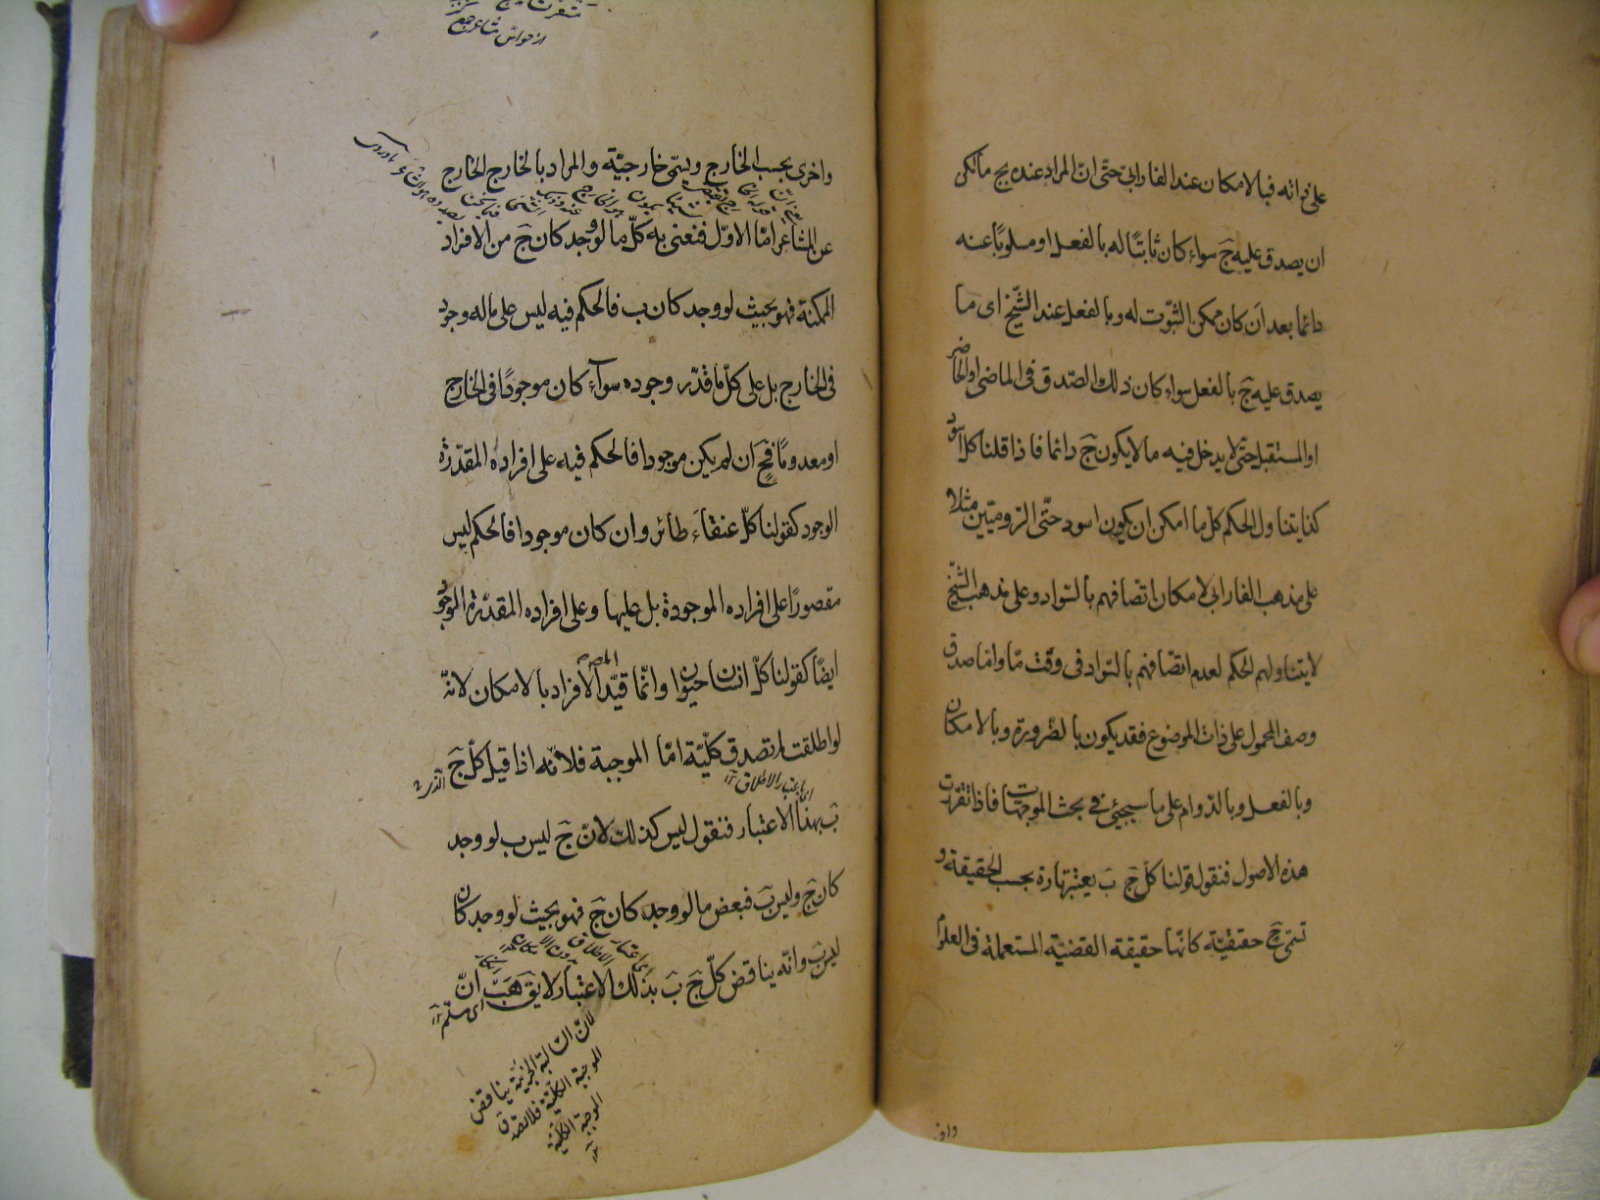 على ذاته فبالامكان عند الفارابى حتى ان المراد عنده بج ما امكن
ان يصدق عليه ج سواء كان ثابتا له بالفعل او مسلوبا عنه
دائما بعد ان كان ممكن الثبوت له وبالفعل عند الشيخ اى ما
يصدق عليه ج بالفعل سواء كان ذلك الصدق فى الماضى او الحاضر
او المستقبل حتى لا يدخل فيه ما لا يكون ج دائما فاذا قلنا كل اسود
كذا يتناول الحكم كل ما امكن ان يكون اسود حتى الزوميين مثلا
على مذهب الفارابى لامكان اتصافهم بالسواد وعلى مذهب الشيخ
لا يتناولهم الحكم لعدم اتصافهم بالسواد فى وقت ما واما صدق
وصف المحمول على ذات الموضوع فقد يكون بالضرورة وبالامكان
وبالفعل وبالدوام على ما سيجيئ فى بحث الموجهات فاذا تقررت
هذه الاصول فنقول قولنا كل ج ب يعتبر تارة بحسب الحقيقة و
تسمى ح حقيقية كانها حقيقة القضية المستعملة فى العلوم
واخرى بحسب الخارج وتسمى خارجية والمراد بالخارج الخارج
عن المشاعر اما الاول فنعنى به كل ما لو وجد كان ج من الافراد
الممكنة فهو بحيث لو وجد كان ب فالحكم فيه ليس على ما له وجود
فى الخارج بل على كل ما قدر وجوده سواء كان موجودا فى الخارج
او معدوما فح ان لم يكن موجودا فالحكم فيه على افراده المقدرة
الوجود كقولنا كل عنقاء طائر وان كان موجودا فالحكم ليس
مقصورا على افراده الموجودة بل عليها وعلى افراده المقدرة الوجود
ايضا كقولنا كل انسان حيوان وانما قيد الافراد بالامكان لانه
لو اطلقت لم تصدق كلية اما الموجبة فلانه اذا قيل كل ج
اى باعتبار الاطلاق
ب بهذا الاعتبار فنقول ليس كذلك لان ج ليس ب لو وجد
كان ج وليس ب فبعض ما لو وجد كان ج فهو بحيث لو وجد كان
ليس ب وانه يناقض كل ج ب بذلك الاعتبار لا يق هب ان
اى سلم
لان السالبة الجزئية يناقض
الموجبة الكلية فلا تصدق
الموجبة الكلية